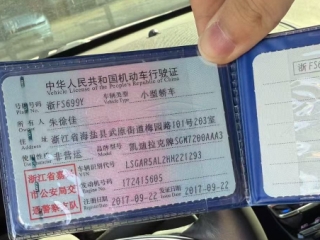 中华人民共和国机动车行驶证
Vehicle License of the People's Republic of China
号牌号码 浙F5699Y 车辆类型 小型轿车
Plate No. Vehicle Type
所有人 朱徐佳
Owner
住址 浙江省海盐县武原街道梅园路101号203室
Address
使用性质 非营运 品牌型号 凯迪拉克牌SGM7200AAA3
Use Character Model
浙江省嘉兴市公安局交通警察支队
车辆识别代号 LSGAR5ALZHH221293
VIN
发动机号码 172415605
Engine No.
注册日期 2017-09-22 发证日期 2017-09-22
Register Date Issue Date